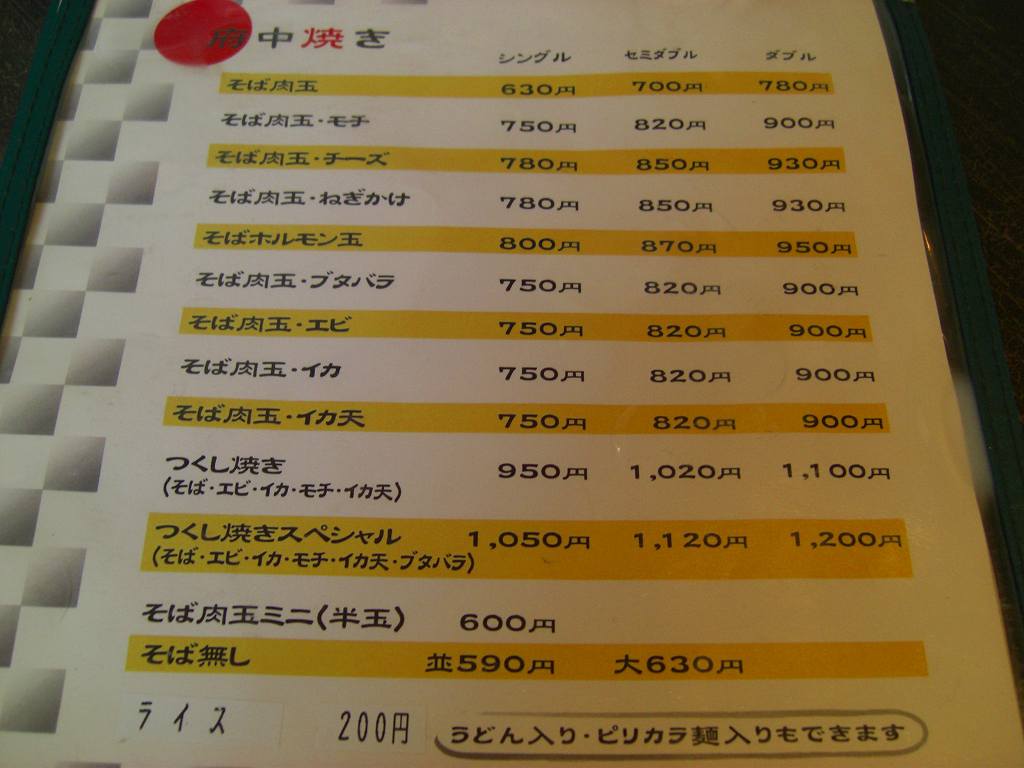 府中焼き
シングル セミダブル ダブル
そば肉玉 630円 700円 780円
そば肉玉・モチ 750円 820円 900円
そば肉玉・チーズ 780円 850円 930円
そば肉玉・ねぎかけ 780円 850円 930円
そばホルモン玉 800円 870円 950円
そば肉玉・ブタバラ 750円 820円 900円
そば肉玉・エビ 750円 820円 900円
そば肉玉・イカ 750円 820円 900円
そば肉玉・イカ天 750円 820円 900円
つくし焼き 950円 1,020円 1,100円
(そば・エビ・イカ・モチ・イカ天)
つくし焼きスペシャル 1,050円 1,120円 1,200円
(そば・エビ・イカ・モチ・イカ天・ブタバラ)
そば肉玉ミニ(半玉) 600円
そば無し 並590円 大630円
ライス 200円
うどん入り・ピリカラ麺入りもできます